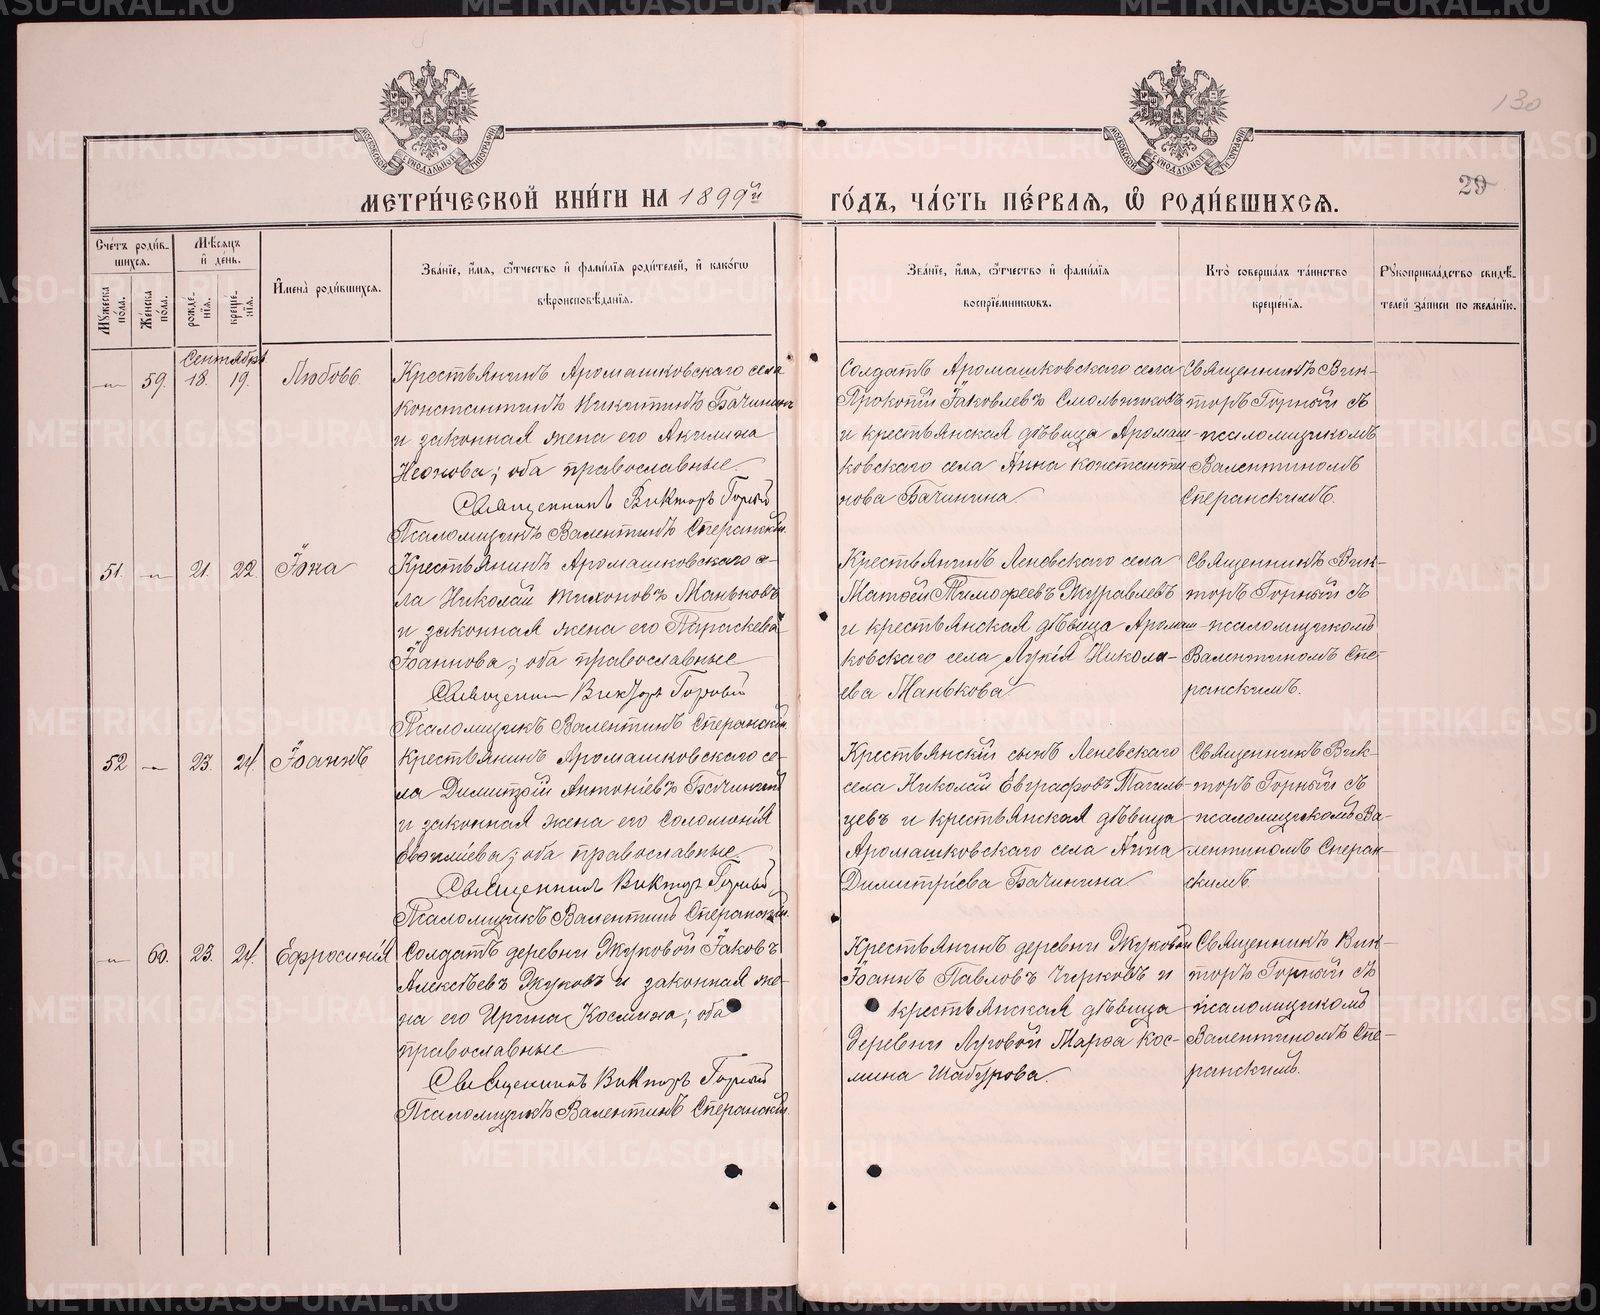 130
29
МЕТРИ́ЧЕСКОЙ КНИ́ГИ НА 1899й ГО́ДЪ, ЧА́СТЬ ПЕ́РВАѦ, Ѡ РОДИ́ВШИХСѦ.
Сче́тъ роди́в-
шихсѧ.
Мꙋжеска по́ла.
Же́нска по́ла.
Мѣ́сѧцъ
и҆ де́нь.
рожде́-
нїѧ.
креще́-
нїѧ.
И҆мена̀ роди́вшихсѧ.
Зва́нїе, и҆́мѧ, ѻ҆́тчество и҆ фами́лїѧ роди́телей, и҆ како́гѡ
вѣроисповѣ́данїѧ.
Зва́нїе, и҆́мѧ, ѻ҆́тчество и҆ фами́лїѧ
воспрїе́мниковъ.
Кто̀ соверша́лъ та́инство
креще́нїѧ.
Рꙋкоприкла́дство свидѣ́-
телей за́писи по жела́нїю.
Сентябрь
—„— 59. 18. 19. Любовь.
Крестьянинъ Аромашковскаго села
Константинъ Никитинъ Бачининъ
и законная жена его Акилина
Неонова; оба православные.
Священникъ Викторъ Горный
Псаломщикъ Валентинъ Сперанскій.
Солдатъ Аромашковскаго села
Прокопій Іаковлевъ Смольниковъ
и крестьянская дѣвица Аромаш-
ковскаго села Анна Константи-
нова Бачинина
Священникъ Вик-
торъ Горный съ
псаломщикомъ
Валентиномъ
Сперанскимъ.
51. —„— 21. 22. Іона
Крестьянинъ Аромашковскаго се-
ла Николай Тихоновъ Маньковъ
и законная жена его Параскева
Іоаннова; оба православные
Священникъ Викторъ Горный
Псаломщикъ Валентинъ Сперанскій.
Крестьянинъ Леневскаго села
Матѳей Тимофеевъ Журавлевъ
и крестьянская дѣвица Аромаш-
ковскаго села Лукія Никола-
ева Манькова
Священникъ Вик-
торъ Горный съ
псаломщикомъ
Валентиномъ Спе-
ранскимъ.
52 —„— 23. 24. Іоаннъ
Крестьянинъ Аромашковскаго се-
ла Димитрій Антоніевъ Бачининъ
и законная жена его Соломонія
; оба православные.
Священникъ Викторъ Горный
Псаломщикъ Валентинъ Сперанскій.
Крестьянскій сынъ Леневскаго
села Николай Евграфовъ Тагиль-
цевъ и крестьянская дѣвица
Аромашковскаго села Анна
Димитріева Бачинина
Священникъ Вик-
торъ Горный съ
псаломщикомъ Ва-
лентиномъ Сперан-
скимъ.
—„— 60. 23. 24. Ефросинія
Солдатъ деревни Жуковой Іаковъ
Алексѣевъ Жуковъ и законная же-
на его Ирина Космина; оба
православные
Священникъ Викторъ Горный
Псаломщикъ Валентинъ Сперанскій.
Крестьянинъ деревни Жуковой
Іоаннъ Павловъ Чирковъ и
крестьянская дѣвица
деревни Луговой Марѳа Кос-
мина Шабурова.
Священникъ Вик-
торъ Горный съ
псаломщикомъ
Валентиномъ Спе-
ранскимъ.
METRIKI.GASO-URAL.RU